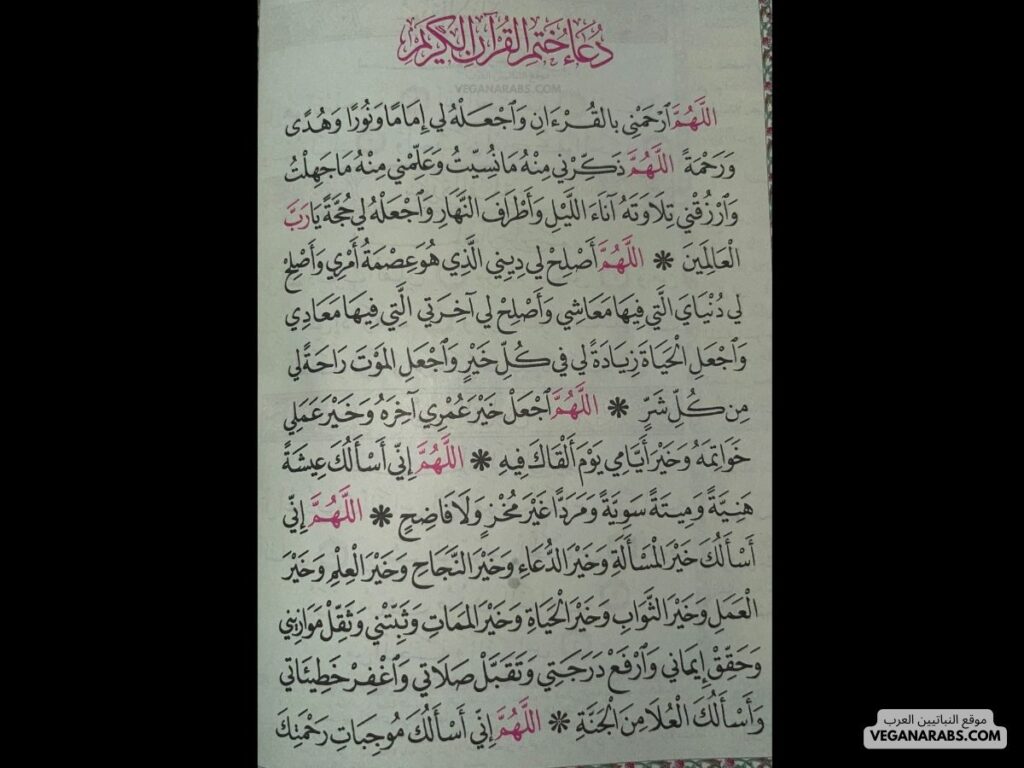 دُعَاءُ خَتْمِ القُرْآنِ الكَرِيمِ
موقع النباتيين العرب
VEGANARABS.COM
اللَّهُمَّ ٱرْحَمْنِي بالقُرْءَانِ وَٱجْعَلْهُ لي إِمَامًا وَنُورًا وَهُدًى
وَرَحْمَةً اللَّهُمَّ ذَكِّرْنِي مِنْهُ مَا نُسِّيتُ وَعَلِّمْنِي مِنْهُ مَا جَهِلْتُ
وَٱرْزُقْنِي تِلَاوَتَهُ آنَاءَ اللَّيْلِ وَأَطْرَافَ النَّهَارِ وَٱجْعَلْهُ لِي حُجَّةً يَا رَبَّ
الْعَالَمِينَ * اللَّهُمَّ أَصْلِحْ لِي دِينِي الَّذِي هُوَ عِصْمَةُ أَمْرِي وَأَصْلِحْ
لِي دُنْيَايَ الَّتِي فِيهَا مَعَاشِي وَأَصْلِحْ لِي آخِرَتِي الَّتِي فِيهَا مَعَادِي
وَٱجْعَلِ الْحَيَاةَ زِيَادَةً لِي فِي كُلِّ خَيْرٍ وَٱجْعَلِ المَوْتَ رَاحَةً لِي
مِن كُلِّ شَرٍّ * اللَّهُمَّ ٱجْعَلْ خَيْرَ عُمْرِي آخِرَهُ وَخَيْرَ عَمَلِي
خَوَاتِمَهُ وَخَيْرَ أَيَّامِي يَوْمَ أَلْقَاكَ فِيهِ * اللَّهُمَّ إِنِّي أَسْأَلُكَ عِيشَةً
هَنِيَّةً وَمِيتَةً سَوِيَّةً وَمَرَدًّا غَيْرَ مُخْزٍ وَلَا فَاضِحٍ * اللَّهُمَّ إِنِّي
أَسْأَلُكَ خَيْرَ الْمَسْأَلَةِ وَخَيْرَ الدُّعَاءِ وَخَيْرَ النَّجَاحِ وَخَيْرَ الْعِلْمِ وَخَيْرَ
الْعَمَلِ وَخَيْرَ الثَّوَابِ وَخَيْرَ الْحَيَاةِ وَخَيْرَ المَمَاتِ وَثَبِّتْنِي وَثَقِّلْ مَوَازِينِي
وَحَقِّقْ إِيمَانِي وَٱرْفَعْ دَرَجَتِي وَتَقَبَّلْ صَلَاتِي وَٱغْفِرْ خَطِيئَاتِي
وَأَسْأَلُكَ الْعُلَا مِنَ الْجَنَّةِ * اللَّهُمَّ إِنِّي أَسْأَلُكَ مُوجِبَاتِ رَحْمَتِكَ
موقع النباتيين العرب
VEGANARABS.COM